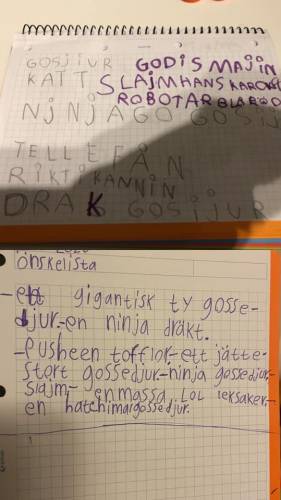 GOSJiUR GODiS MAjiN
KATT SLAjMHANS KAROWS
ROBOTAR BLARÖD
NjNjAGO GOSij
TELLEFÅN
RiKTiKANNiN
DRAK GOSijUR
önskelista
-ett gigantisk ty gosse-
djur.-en ninja dräkt.
-Pusheen tofflor-ett jätte-
stort gossedjur-ninja gossedjur-
slajm- en massa LOL leksaker-
en hatchimal gossedjur.